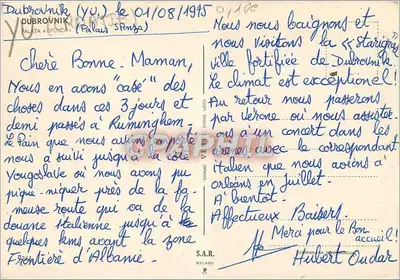 Dubrovnik (YU.) le 01/08/1975
DUBROVNIK
(Palais Sponza)
Chère Bonne-Maman,
Nous en avons "casé" des
choses dans ces 3 jours et
demi passés à Ruminghem.
Le Pain que nous avions
nous a suivi jusqu'à la côte
Yougoslave où nous avons pu
pique-niquer près de la fa-
meuse route qui va de la
douane Italienne jusqu'à
quelques kms avant la zone
Frontière d'Albanie.
Nous nous baignons et
nous visitons la «starigrad»
ville fortifiée de Dubrovnik.
Le climat est exceptionnel!
Au retour nous passerons
par Vérone où nous assiste-
rons à un concert dans les
arènes avec le correspondant
italien que nous avions à
orléans en Juillet.
A bientôt.
Affectueux Baisers
Merci pour le Bon
accueil!
Hubert Oudar
S.A.R.
MILANO